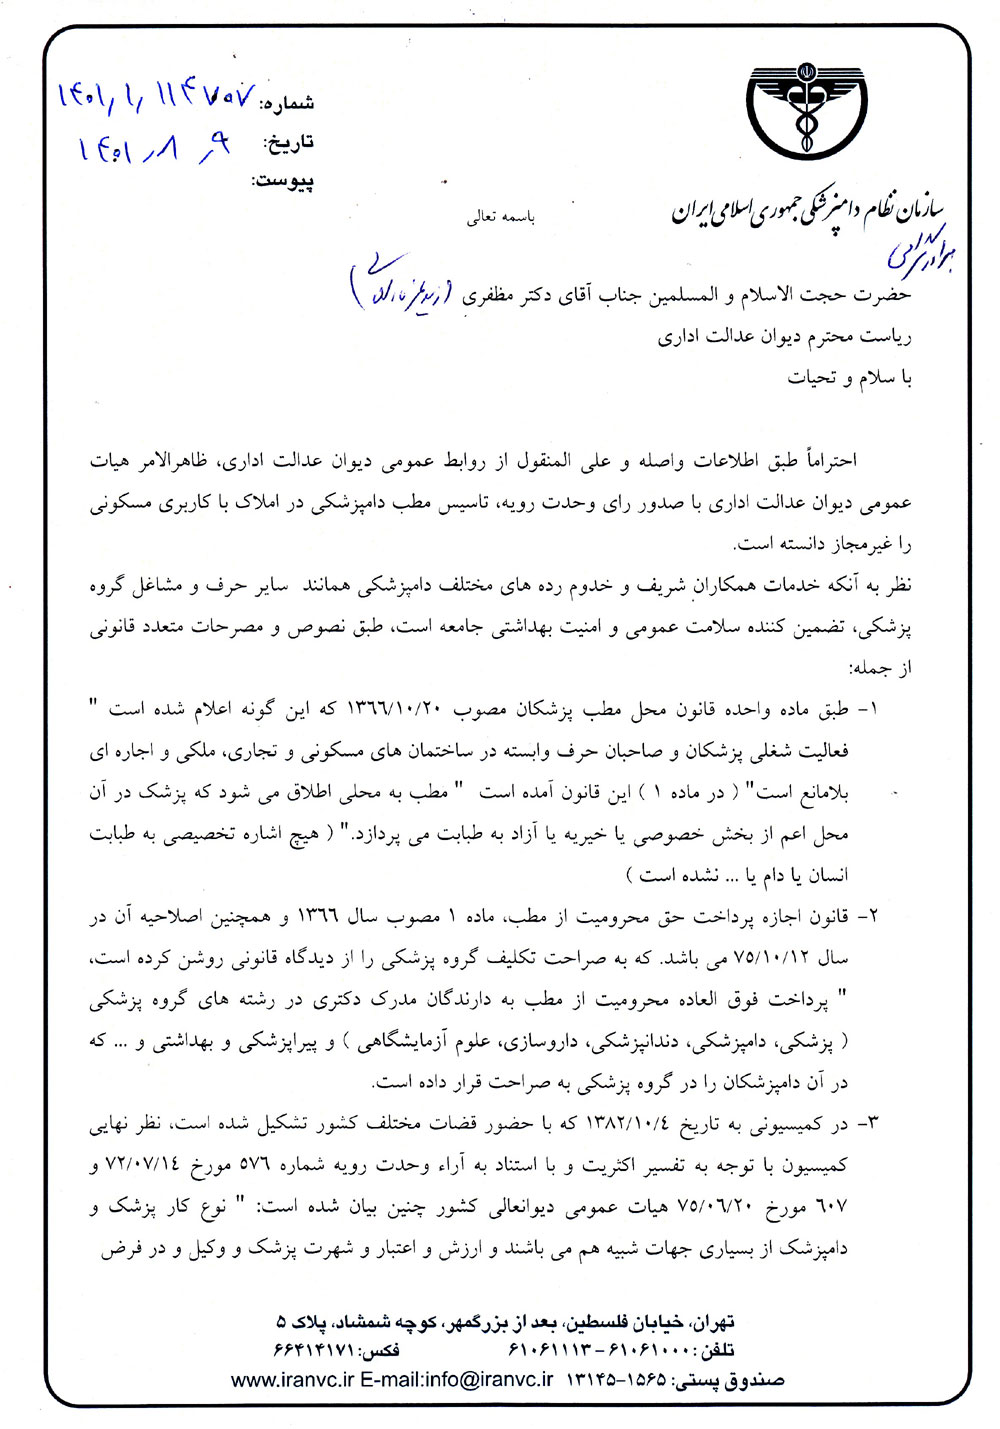 شماره: ۱۴۰۱/۱/۱۱۴۷۰۷
تاریخ: ۱۴۰۱/۸/۹
پیوست:
سازمان نظام دامپزشکی جمهوری اسلامی ایران
باسمه تعالی
برادر گرامی
حضرت حجت الاسلام و المسلمین جناب آقای دکتر مظفری
ریاست محترم دیوان عدالت اداری
با سلام و تحیات
احتراماً طبق اطلاعات واصله و علی المنقول از روابط عمومی دیوان عدالت اداری، ظاهرالامر هیات
عمومی دیوان عدالت اداری با صدور رای وحدت رویه، تاسیس مطب دامپزشکی در املاک با کاربری مسکونی
را غیرمجاز دانسته است.
نظر به آنکه خدمات همکاران شریف و خدوم رده های مختلف دامپزشکی همانند سایر حرف و مشاغل گروه
پزشکی، تضمین کننده سلامت عمومی و امنیت بهداشتی جامعه است، طبق نصوص و مصرحات متعدد قانونی
از جمله:
۱- طبق ماده واحده قانون محل مطب پزشکان مصوب ۱۳۶۶/۱۰/۲۰ که این گونه اعلام شده است "
فعالیت شغلی پزشکان و صاحبان حرف وابسته در ساختمان های مسکونی و تجاری، ملکی و اجاره ای
بلامانع است" ( در ماده ۱ ) این قانون آمده است " مطب به محلی اطلاق می شود که پزشک در آن
محل اعم از بخش خصوصی یا خیریه یا آزاد به طبابت می پردازد." ( هیچ اشاره تخصیصی به طبابت
انسان یا دام یا ... نشده است )
۲- قانون اجازه پرداخت حق محرومیت از مطب، ماده ۱ مصوب سال ۱۳۶۶ و همچنین اصلاحیه آن در
سال ۷۵/۱۰/۱۲ می باشد. که به صراحت تکلیف گروه پزشکی را از دیدگاه قانونی روشن کرده است،
" پرداخت فوق العاده محرومیت از مطب به دارندگان مدرک دکتری در رشته های گروه پزشکی
( پزشکی، دامپزشکی، دندانپزشکی، داروسازی، علوم آزمایشگاهی ) و پیراپزشکی و بهداشتی و ... که
در آن دامپزشکان را در گروه پزشکی به صراحت قرار داده است.
۳- در کمیسیونی به تاریخ ۱۳۸۲/۱۰/۴ که با حضور قضات مختلف کشور تشکیل شده است، نظر نهایی
کمیسیون با توجه به تفسیر اکثریت و با استناد به آراء وحدت رویه شماره ۵۷۶ مورخ ۷۲/۰۷/۱۴ و
۶۰۷ مورخ ۷۵/۰۶/۲۰ هیات عمومی دیوانعالی کشور چنین بیان شده است: " نوع کار پزشک و
دامپزشک از بسیاری جهات شبیه هم می باشند و ارزش و اعتبار و شهرت پزشک و وکیل و در فرض
تهران، خیابان فلسطین، بعد از بزرگمهر، کوچه شمشاد، پلاک ۵
تلفن : ۶۱۰۶۱۰۰۰ - ۶۱۰۶۱۱۱۳ فکس: ۶۶۴۱۴۱۷۱
صندوق پستی: ۱۵۶۵-۱۳۱۴۵ www.iranvc.ir E-mail:info@iranvc.ir